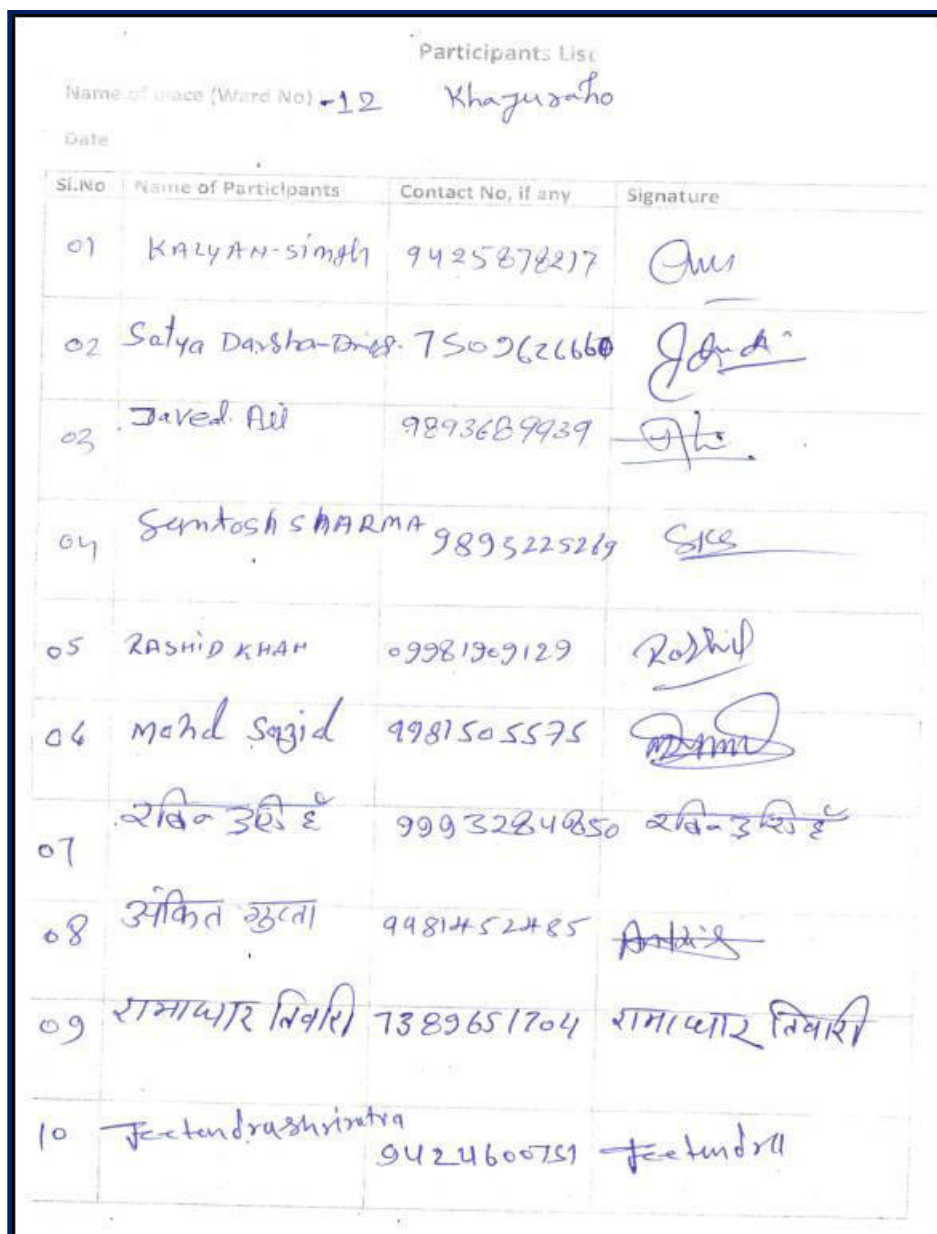 Participants List
Name of place (Ward No) - 12 Khajuraho
Date
Sl.No Name of Participants Contact No, if any Signature
01 KALYAN-Singh 9425878217
02 Satya Darsha 7509626660
03 Javed. Ali 9893689939
04 Santosh SHARMA 9893225269 SKS
05 RASHID KHAN 09981909129 Rashid
06 Mohd Sazid 9981505575
07 9993284850
08 अंकित गुप्ता 9981452485 Ankit
09 रामाधार तिवारी 7389651704 रामाधार तिवारी
10 Jeetendra shrivatra 9424600751 Jeetendra